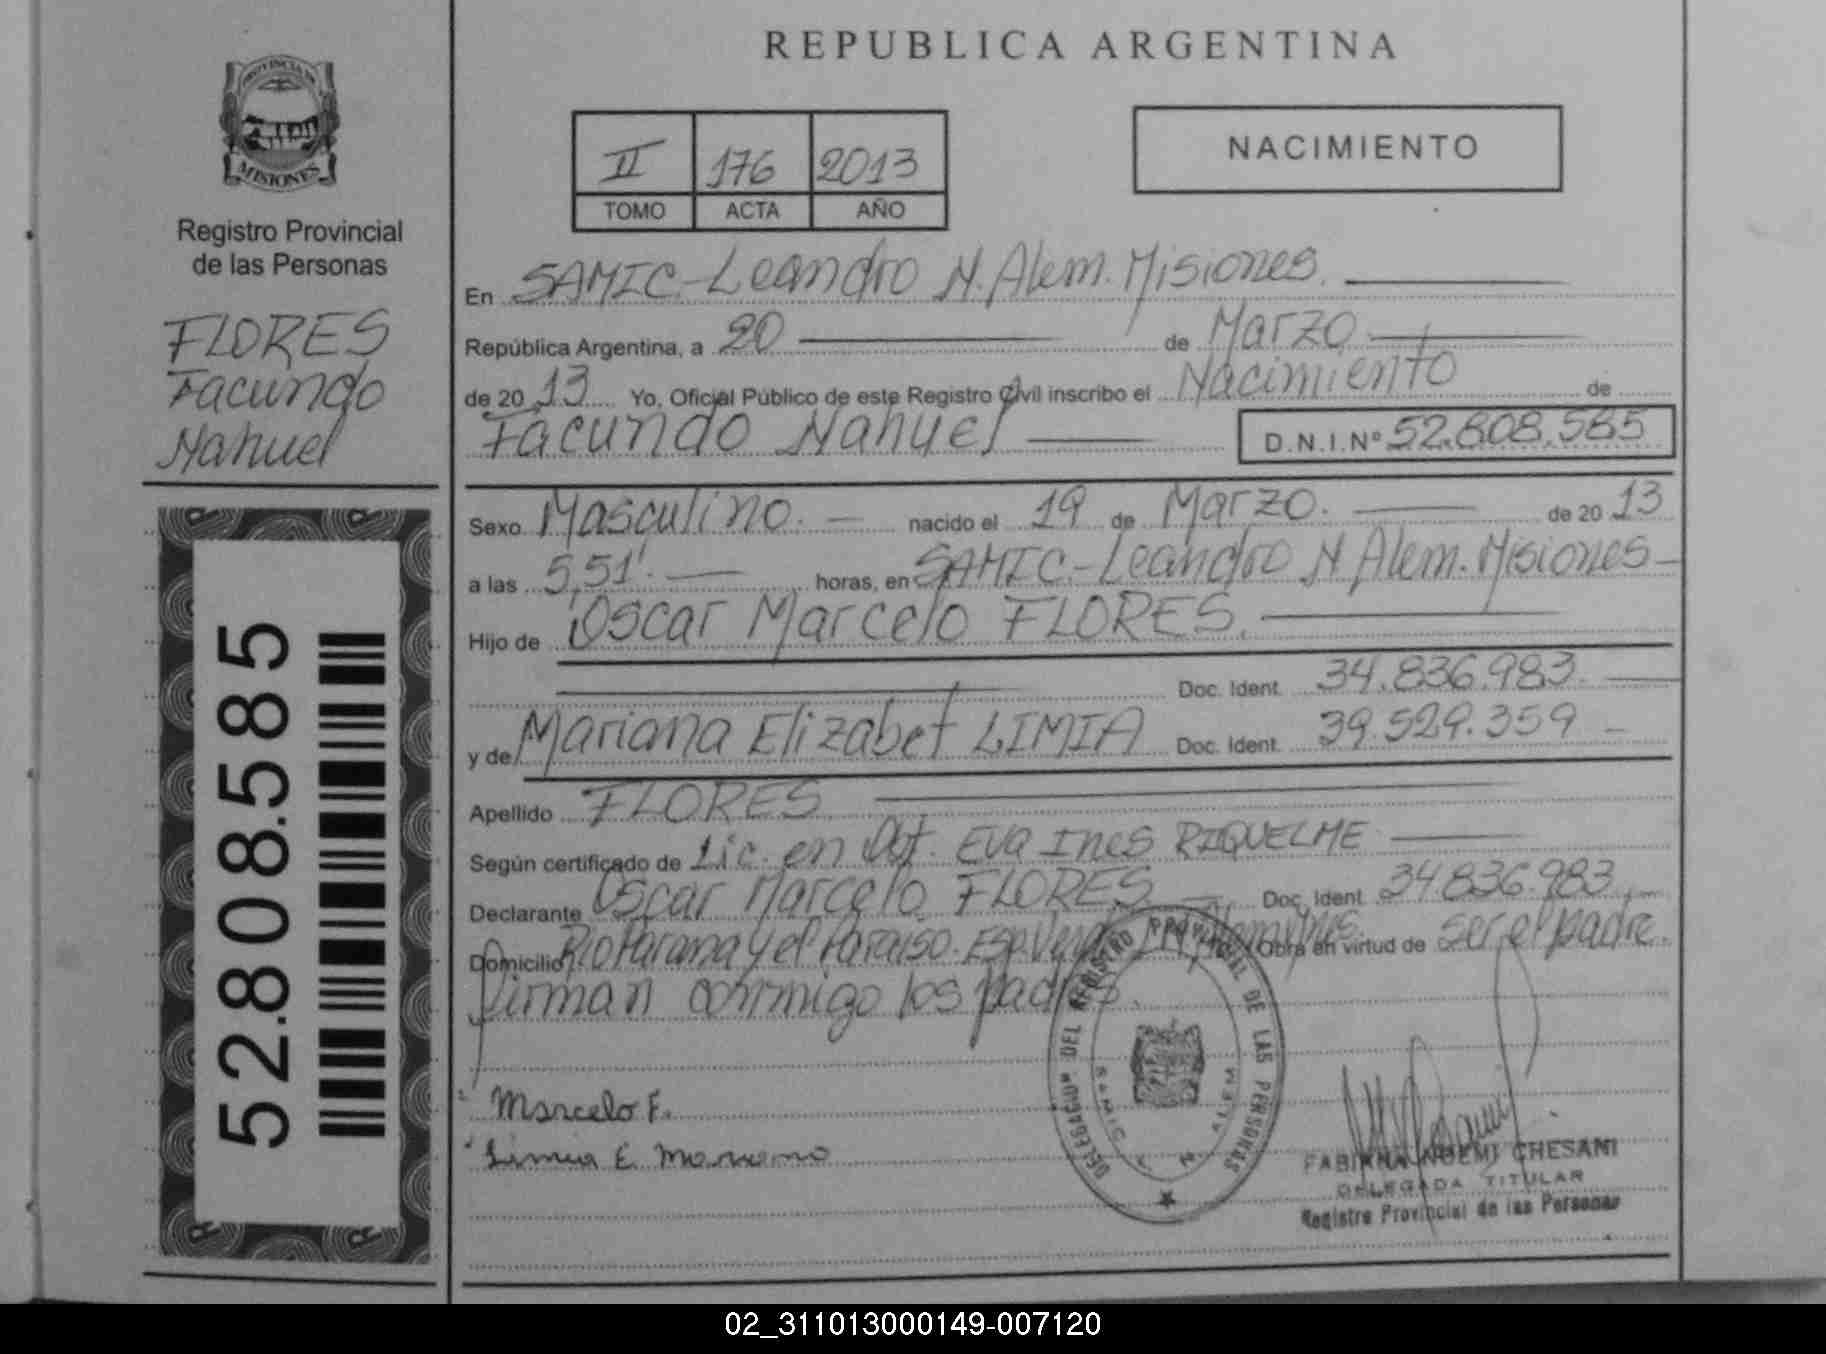 PROVINCIA DE
MISIONES
Registro Provincial
de las Personas
FLORES
Facundo
Nahuel
52.808.585
REPUBLICA ARGENTINA
II 176 2013
TOMO ACTA AÑO
NACIMIENTO
En SAMIC.-Leandro N. Alem. Misiones.
República Argentina, a 20 de Marzo
de 20 13 Yo, Oficial Público de este Registro Civil inscribo el Nacimiento de
Facundo Nahuel D.N.I.Nº 52.808.585
Sexo Masculino. nacido el 19 de Marzo. de 20 13
a las 5,51'. horas, en SAMIC.-Leandro N. Alem. Misiones
Hijo de Oscar Marcelo FLORES.
Doc. Ident. 34.836.983.
y de Mariana Elizabet LIMIA Doc. Ident. 39.529.359
Apellido FLORES
Según certificado de Lic. en Obst. Eva Ines RIQUELME
Declarante Oscar Marcelo FLORES Doc. Ident. 34836.983
Domicilio Rio Parana y el Paraiso. Esp. Verde Obra en virtud de ser el padre.
firman conmigo los padres.
Marcelo F.
Limia E. Mariana
DELEGACION DEL REGISTRO PROVINCIAL DE LAS PERSONAS
SAMIC L. N. ALEM
FABIANA NOEMI CHESANI
DELEGADA TITULAR
Registro Provincial de las Personas
02_311013000149-007120